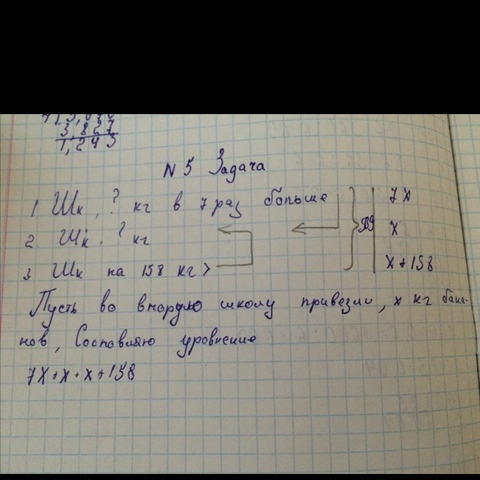 3,827
1,243
N 5 Задача
1 Шк, ? кг в 7 раз больше 7x
2 Шк, ? кг x
3 Шк на 158 кг > x + 158
Пусть во вторую школу привезли, x кг бана-
нов, Составляю уровнение
7x + x + x + 158